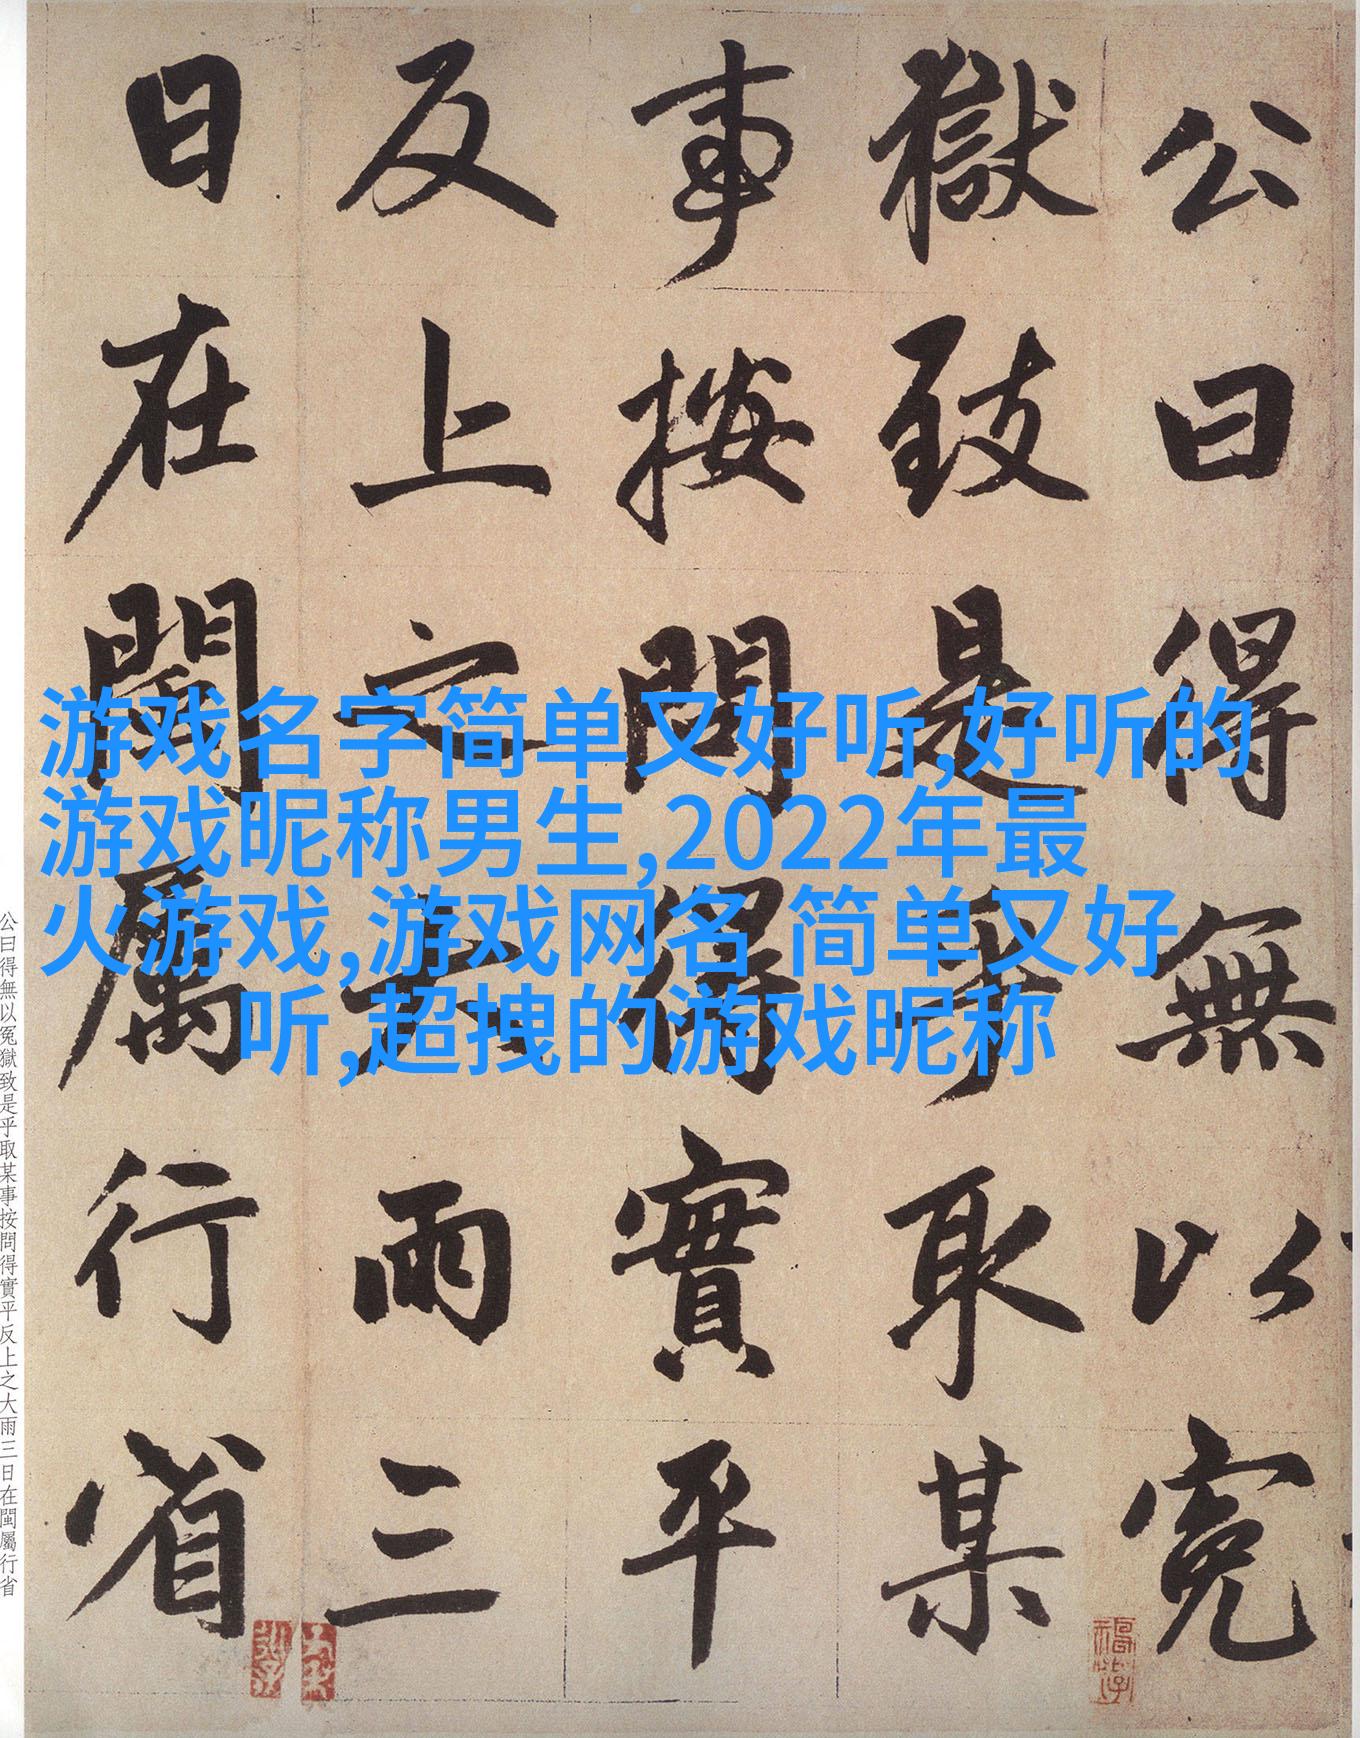 公曰得無以冤
獄致是乎取某
事按問得實平
反上之大雨三
日在閩屬行省
游戏名字简单又好听,好听的
游戏昵称男生,2022年最
火游戏,游戏网名 简单又好
听,超拽的游戏昵称
公曰得無以冤獄致是乎取某事按問得實平反上之大雨三日在閩屬行省